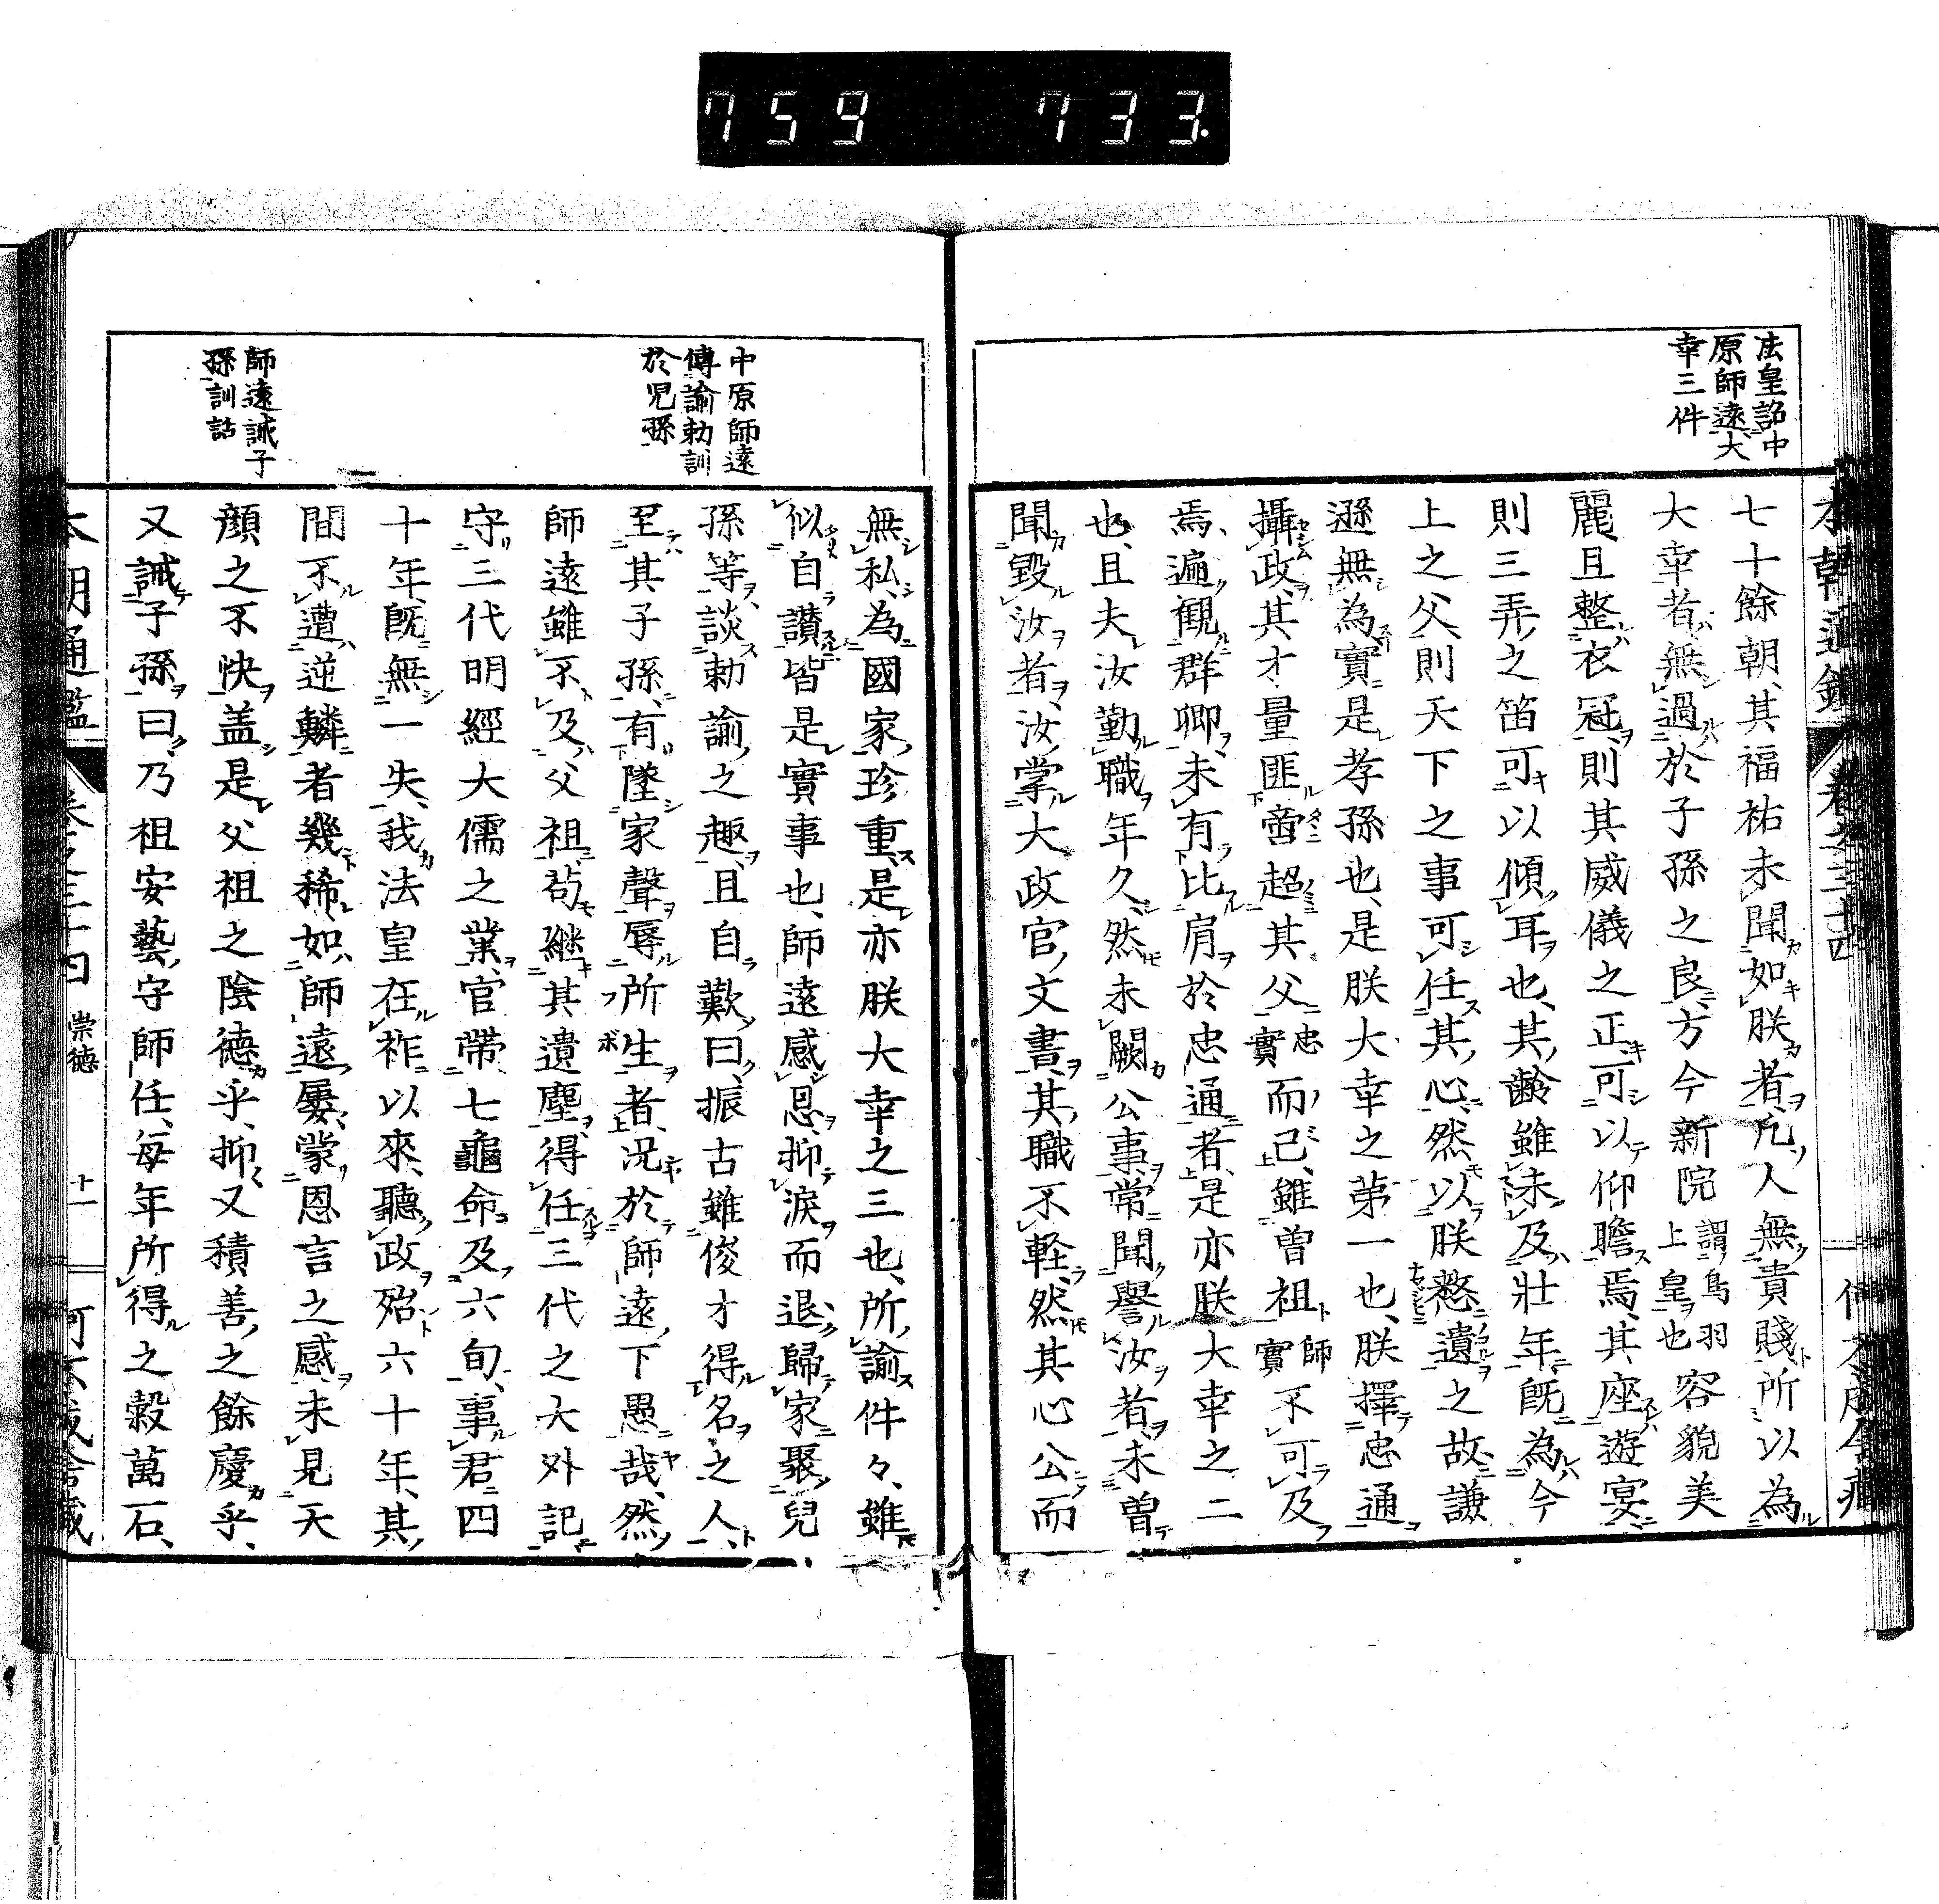 759 733.
法皇詔中
原師遠大
幸三件
七十餘朝其福祐未聞如朕者凡人無貴賤所以為
大幸者無過於子孫之良方今新院謂鳥羽上皇也容貌美
麗且整衣冠則其威儀之正可以仰瞻焉其座遊宴
則三弄之笛可以傾耳也其齢雖未及壯年既為今
上之父則天下之事可任其心然以朕愁遺之故謙
遜無為實是孝孫也是朕大幸之第一也朕擇忠通
攝政其才量匪啻超其父忠實而已雖曽祖師實不可及
焉遍觀群卿未有比肩於忠通者是亦朕大幸之二
也且夫汝勤職年久然未闕公事常聞譽汝者未曽
聞毀汝者汝掌大政官文書其職不軽然其心公而
中原師遠
傳諭勅訓
於児孫
師遠誡子
孫訓詁
無私為國家珍重是亦朕大幸之三也所諭件々雖
似自讃皆是實事也師遠感恩抑淚而退歸家聚兒
孫等談勅諭之趣且自歎曰振古雖俊才得名之人
至其子孫有墜家聲辱所生者況於師遠下愚哉然
師遠雖不及父祖苟継其遺塵得任三代之大外記
守三代明經大儒之業官帶七龜命及六旬事君四
十年既無一失我法皇在祚以來聽政殆六十年其
間不遭逆鱗者幾稀如師遠屡蒙恩言之感未見天
顔之不快盖是父祖之陰德乎抑又積善之餘慶乎
又誡子孫曰乃祖安藝守師任每年所得之穀萬石
本朝通鑑 卷之三十四 崇德 十一